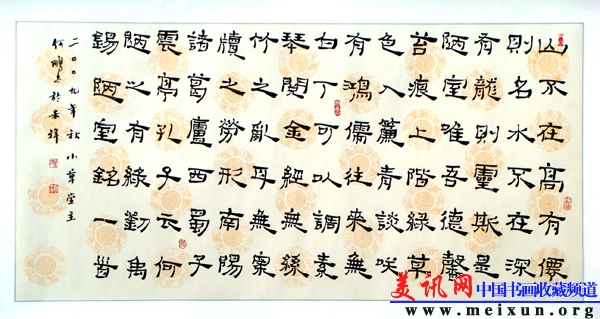 山不在高有僊
則名水不在深
有龍則靈斯是
陋室唯吾德馨
苔痕上階綠草
色入簾青談咲
有鴻儒往來無
白丁可以調素
琴閱金經無絲
竹之亂耳無案
牘之勞形南陽
諸葛廬西蜀子
雲亭孔子云何
陋之有錄劉禹
錫陋室銘一首
二〇〇九年秋小草堂主
於
美讯网 中国书画收藏频道
www.meixun.org